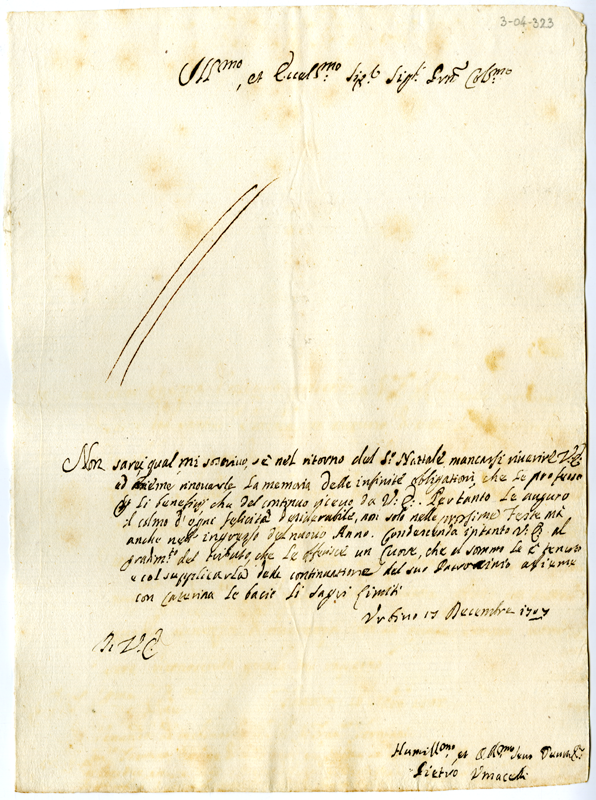 3-04-323
Ill.mo, et Eccell.mo Sig.r Sig.r Pron Col.mo
Non sarei qual mi soscrivo, se nel ritorno del S. Nattale mancassi riverire V.E.
ed insieme rinovarle la memoria delle infinite obligationi, che le professo
p li beneficij che del continuo ricevo da V.E. Pertanto le auguro
il colmo d'ogni felicità desiderabile, non solo nelle prossime Feste mà
anche nell'ingresso del nuovo Anno. Condescenda intanto V.E. al
gradim.to del tributo, che le offerisce un Cuore, che al sommo le è tenuto
e col supplicarla della continuatione del suo Patrocinio assieme
con Caterina le bacio li sagri Limbi
Urbino 17 Decembre 1707
Di V.E.
Humill.mo et Servo
Pietro